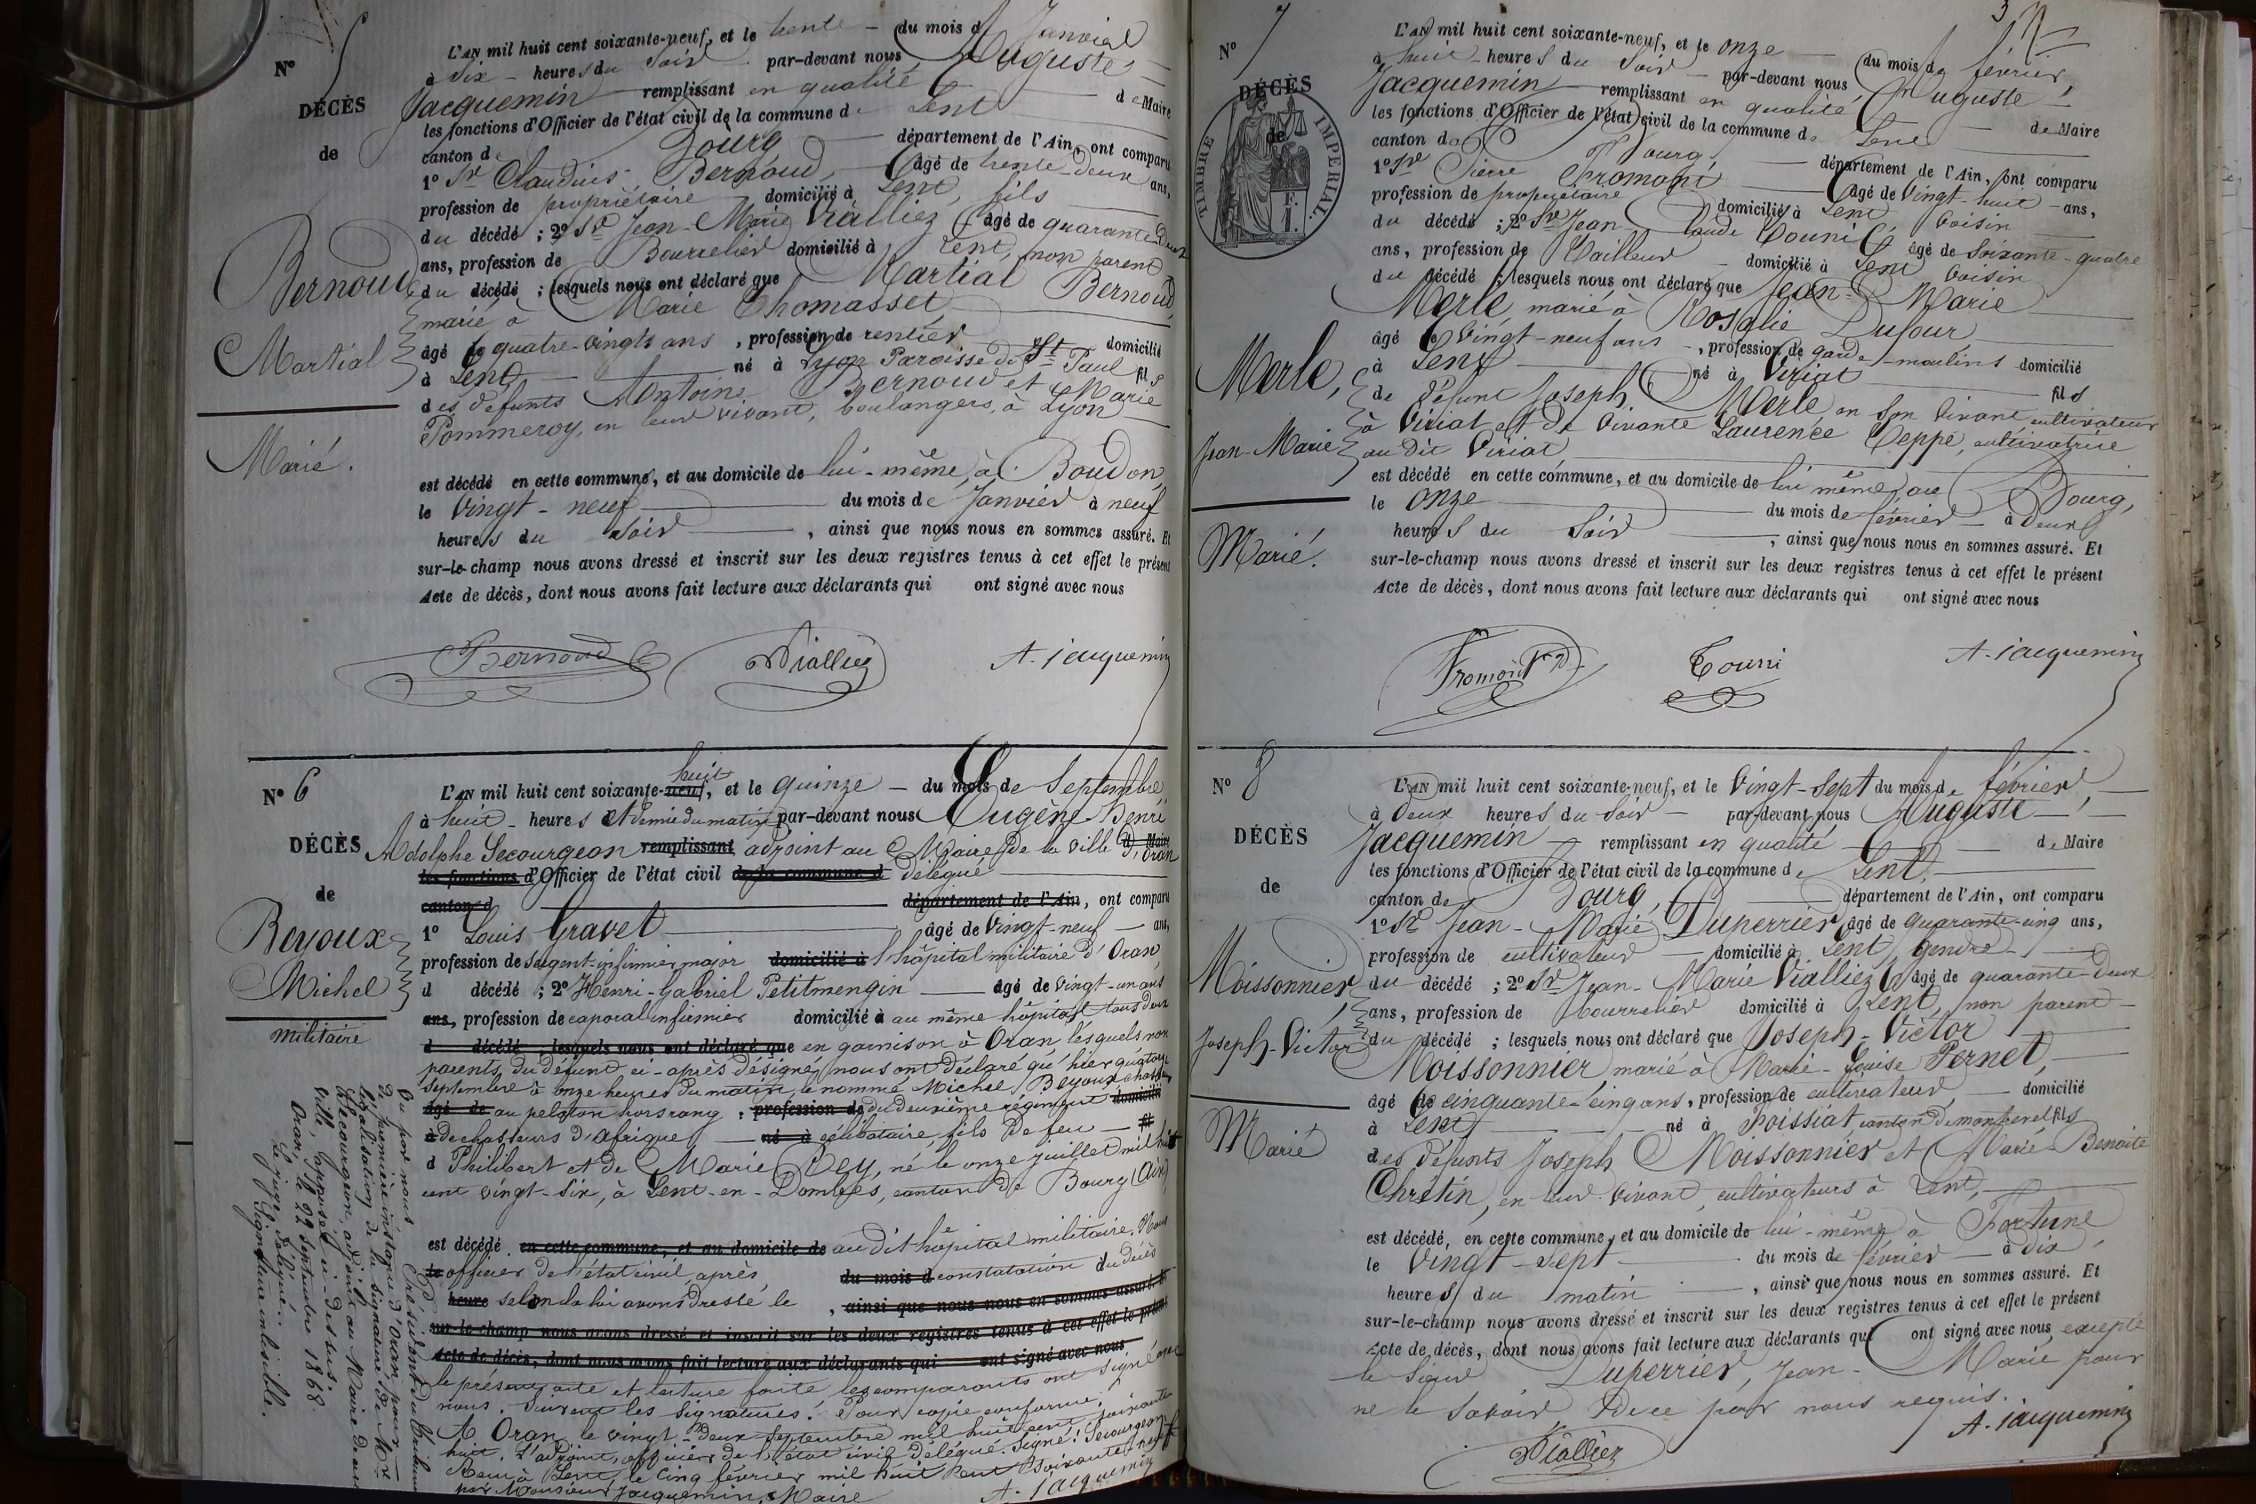 N° 5
DÉCÈS
de
Bernoud
Martial
Marié.
L'AN mil huit cent soixante-neuf, et le trente du mois de Janvier
à dix heures du soir par-devant nous Auguste
Jacquemin remplissant en qualité de Maire
les fonctions d'Officier de l'état civil de la commune de Lent
canton de Bourg département de l'Ain, ont comparu
1° Sr Claudius Bernoud, âgé de trente-deux ans,
profession de propriétaire domicilié à Lent, fils
du décédé ; 2° Sr Jean-Marie Vialliez âgé de quarante-deux
ans, profession de Bourrelier domicilié à Lent, non parent
du décédé ; lesquels nous ont déclaré que Martial Bernoud,
marié à Marie Thomasset,
âgé de quatre-vingts ans, profession de rentier domicilié
à Lent né à Lyon Paroisse de St Paul fils
des défunts Antoine Bernoud et Marie
Pommeroy, en leur vivant, boulangers, à Lyon
est décédé en cette commune, et au domicile de lui-même, à Boudon,
le vingt-neuf du mois de Janvier à neuf
heures du soir, ainsi que nous nous en sommes assuré. Et
sur-le-champ nous avons dressé et inscrit sur les deux registres tenus à cet effet le présent
Acte de décès, dont nous avons fait lecture aux déclarants qui ont signé avec nous
Bernoud Vialliez A. Jacquemin
N° 6
DÉCÈS
de
Beyoux
Michel
militaire
L'AN mil huit cent soixante-neuf huit, et le quinze du mois de Septembre
à huit heures et demie du matin par-devant nous Eugène-Henri
Adolphe Secourgeon remplissant adjoint au Maire de la ville d'Oran
les fonctions d'Officier de l'état civil de la commune d délégué
canton d département de l'Ain, ont comparu
1° Louis Gravet âgé de vingt-neuf ans,
profession de sergent-infirmier major domicilié à l'hôpital militaire d'Oran
d décédé ; 2° Henri-Gabriel Petitmengin âgé de vingt-un ans
ans, profession de caporal infirmier domicilié à au même hôpital tous deux
d décédé lesquels nous ont déclaré que en garnison à Oran lesquels non
parents du défunt ci-après désigné, nous ont déclaré qu'hier quatorze
Septembre à onze heures du matin, le nommé Michel Beyoux chasseur
âgé de au peloton hors rang, profession de du deuxième régiment domicilié
à de chasseurs d'Afrique né à célibataire, fils de feu
d Philibert et de Marie Rey, né le onze juillet mil huit
cent vingt-six, à Lent-en-Dombes, canton de Bourg (Ain)
est décédé en cette commune, et au domicile de au dit hôpital militaire. Nous
le officier de l'état civil, après du mois d constatation du décès
heure selon la loi avons dressé le, ainsi que nous nous en sommes assuré. Et
sur-le-champ nous avons dressé et inscrit sur les deux registres tenus à cet effet le présent
Acte de décès, dont nous avons fait lecture aux déclarants qui ont signé avec nous
le présent acte et lecture faite les comparants ont signé avec
nous. Suivent les signatures. Pour copie conforme.
A Oran, le vingt-deux septembre mil huit cent soixante
huit. L'adjoint, officier de l'état civil délégué. Signé: Secourgeon
Reçu à Lent, le cinq février mil huit cent soixante-neuf
par Monsieur Jacquemin, Maire A. Jacquemin
Vu par nous Président du tribunal
de première instance d'Oran pour
légalisation de la signature de Mr
Secourgeon, adjoint au Maire de cette
ville, apposée ci-dessus.
Oran, le 22 septembre 1868
Le juge délégué.
Signature illisible.
N° 7
DÉCÈS
de
TIMBRE IMPÉRIAL.
Merle,
Jean-Marie
Marié.
3
L'AN mil huit cent soixante-neuf, et le onze du mois de février,
à huit heures du soir par-devant nous Auguste
Jacquemin remplissant en qualité de Maire
les fonctions d'Officier de l'état civil de la commune de Lent
canton de Bourg département de l'Ain, ont comparu
1° Sr Pierre Fromont âgé de vingt-huit ans,
profession de propriétaire domicilié à Lent voisin
du décédé ; 2° Sr Jean-Claude Couni âgé de soixante-quatre
ans, profession de Tailleur domicilié à Lent voisin
du décédé ; lesquels nous ont déclaré que Jean-Marie
Merle, marié à Rosalie Dufour
âgé de vingt-neuf ans, profession de garde-moulins domicilié
à Lent né à Viriat fils
de défunt Joseph Merle, en son vivant cultivateur
à Viriat et de vivante Laurence Ceppe, cultivatrice
au dit Viriat
est décédé en cette commune, et au domicile de lui même, au Bourg,
le onze du mois de février à deux
heures du soir, ainsi que nous nous en sommes assuré. Et
sur-le-champ nous avons dressé et inscrit sur les deux registres tenus à cet effet le présent
Acte de décès, dont nous avons fait lecture aux déclarants qui ont signé avec nous
Fromont Couni A. Jacquemin
N° 8
DÉCÈS
de
Moissonnier
Joseph-Victor
Marié
L'AN mil huit cent soixante-neuf, et le vingt-sept du mois de février,
à deux heures du soir par-devant nous Auguste
Jacquemin remplissant en qualité de Maire
les fonctions d'Officier de l'état civil de la commune de Lent,
canton de Bourg, département de l'Ain, ont comparu
1° Sr Jean-Marie Duperrier, âgé de quarante-cinq ans,
profession de cultivateur domicilié à Lent, gendre
du décédé ; 2° Sr Jean-Marie Vialliez âgé de quarante-deux
ans, profession de bourrelier domicilié à Lent, non parent
du décédé ; lesquels nous ont déclaré que Joseph-Victor
Moissonnier, marié à Marie-Louise Pernet,
âgé de cinquante-cinq ans, profession de cultivateur, domicilié
à Lent né à Foissiat canton de montrevel fils
des défunts Joseph Moissonnier et Marie-Benoite
Chrétin, en leur vivant, cultivateurs à Lent,
est décédé, en cette commune, et au domicile de lui-même à Fortune
le vingt-sept du mois de février à dix
heures du matin, ainsi que nous nous en sommes assuré. Et
sur-le-champ nous avons dressé et inscrit sur les deux registres tenus à cet effet le présent
Acte de décès, dont nous avons fait lecture aux déclarants qui ont signé avec nous, excepté
le Sieur Duperrier, Jean-Marie pour
ne le savoir de ce par nous requis.
Vialliez A. Jacquemin